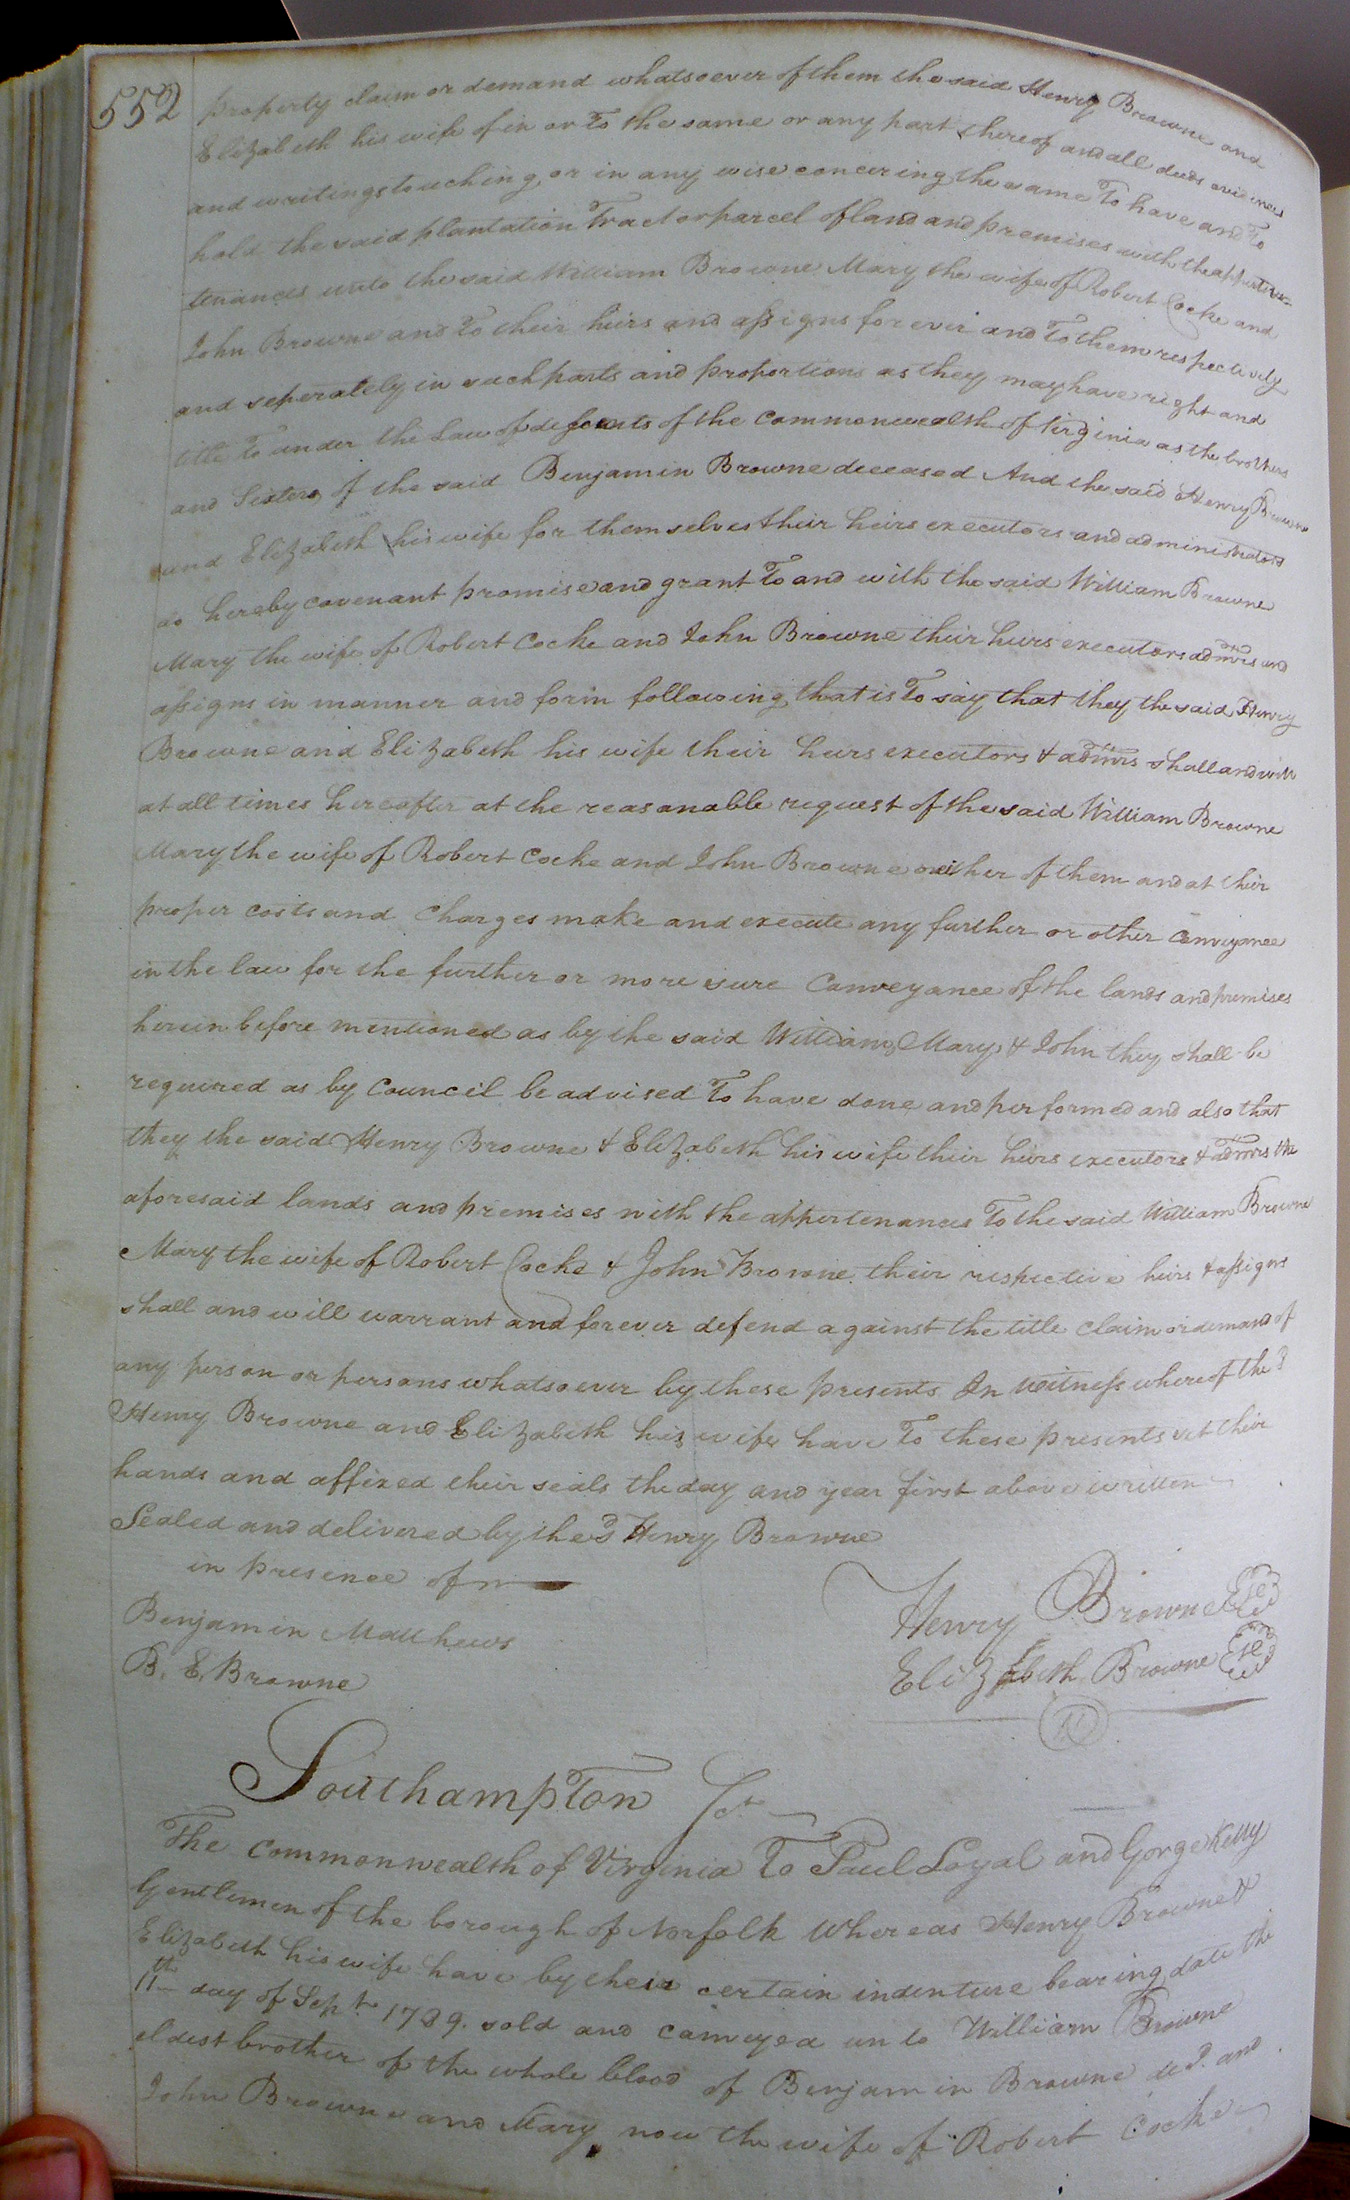 552
property claim or demand whatsoever of them the said Henry Browne and
Elizabeth his wife of in or to the same or any part thereof and all deeds evidences
and writings touching or in any wise concering the same To have and To
hold the said plantation Tract or parcel of land and premises with the apperte=
tenances unto the said William Browne Mary the wife of Robert Cocke and
John Browne and To their heirs and assigns for ever and To them respectively
and seperately in such parts and proportions as they may have right and
title to under the Law of descents of the commonwealth of Virginia as the brothers
and Sisters of the said Benjamin Browne deceased And the said Henry Browne
and Elizabeth his wife for themselves their heirs executors and administrators
do hereby covenant promise and grant To and with the said William Browne
Mary the wife of Robert Cocke and John Browne their heirs executors admrs and
assigns in manner and form following that is To say that they the said Henry
Browne and Elizabeth his wife their heirs executors & admrs shall and will
at all times hereafter at the reasonable request of the said William Browne
Mary the wife of Robert Cocke and John Browne or either of them and at their
proper costs and Charges make and execute any further or other conveyance
in the law for the further or more sure Conveyance of the lands and premises
herein before mentioned as by the said William, Mary & John they shall be
required as by Council be advised To have done and performed and also that
they the said Henry Browne & Elizabeth his wife their heirs executors & admrs the
aforesaid lands and premises with the appertenances To the said William Browne
Mary the wife of Robert Cocke & John Browne their respective heirs & assigns
shall and will warrant and forever defend against the title claim or demand of
any person or persons whatsoever by these presents In witness whereof the sd
Henry Browne and Elizabeth his wife have To these presents set their
hands and affixed their seals the day and year first above written
Sealed and delivered by the sd Henry Browne
in presence of
Benjamin Matthews
B. E. Browne
Henry Browne
Elizabeth Browne
Southampton Sct
The commonwealth of Virginia To Paul Loyal and Gorge Kelly
Gentlemen of the borough of Norfolk Whereas Henry Browne &
Elizabeth his wife have by their certain indenture bearing date the
11th day of Sepbr 1789. sold and conveyed unto William Browne
eldest brother of the whole blood of Benjamin Browne decd. and
John Browne and Mary now the wife of Robert Cocke